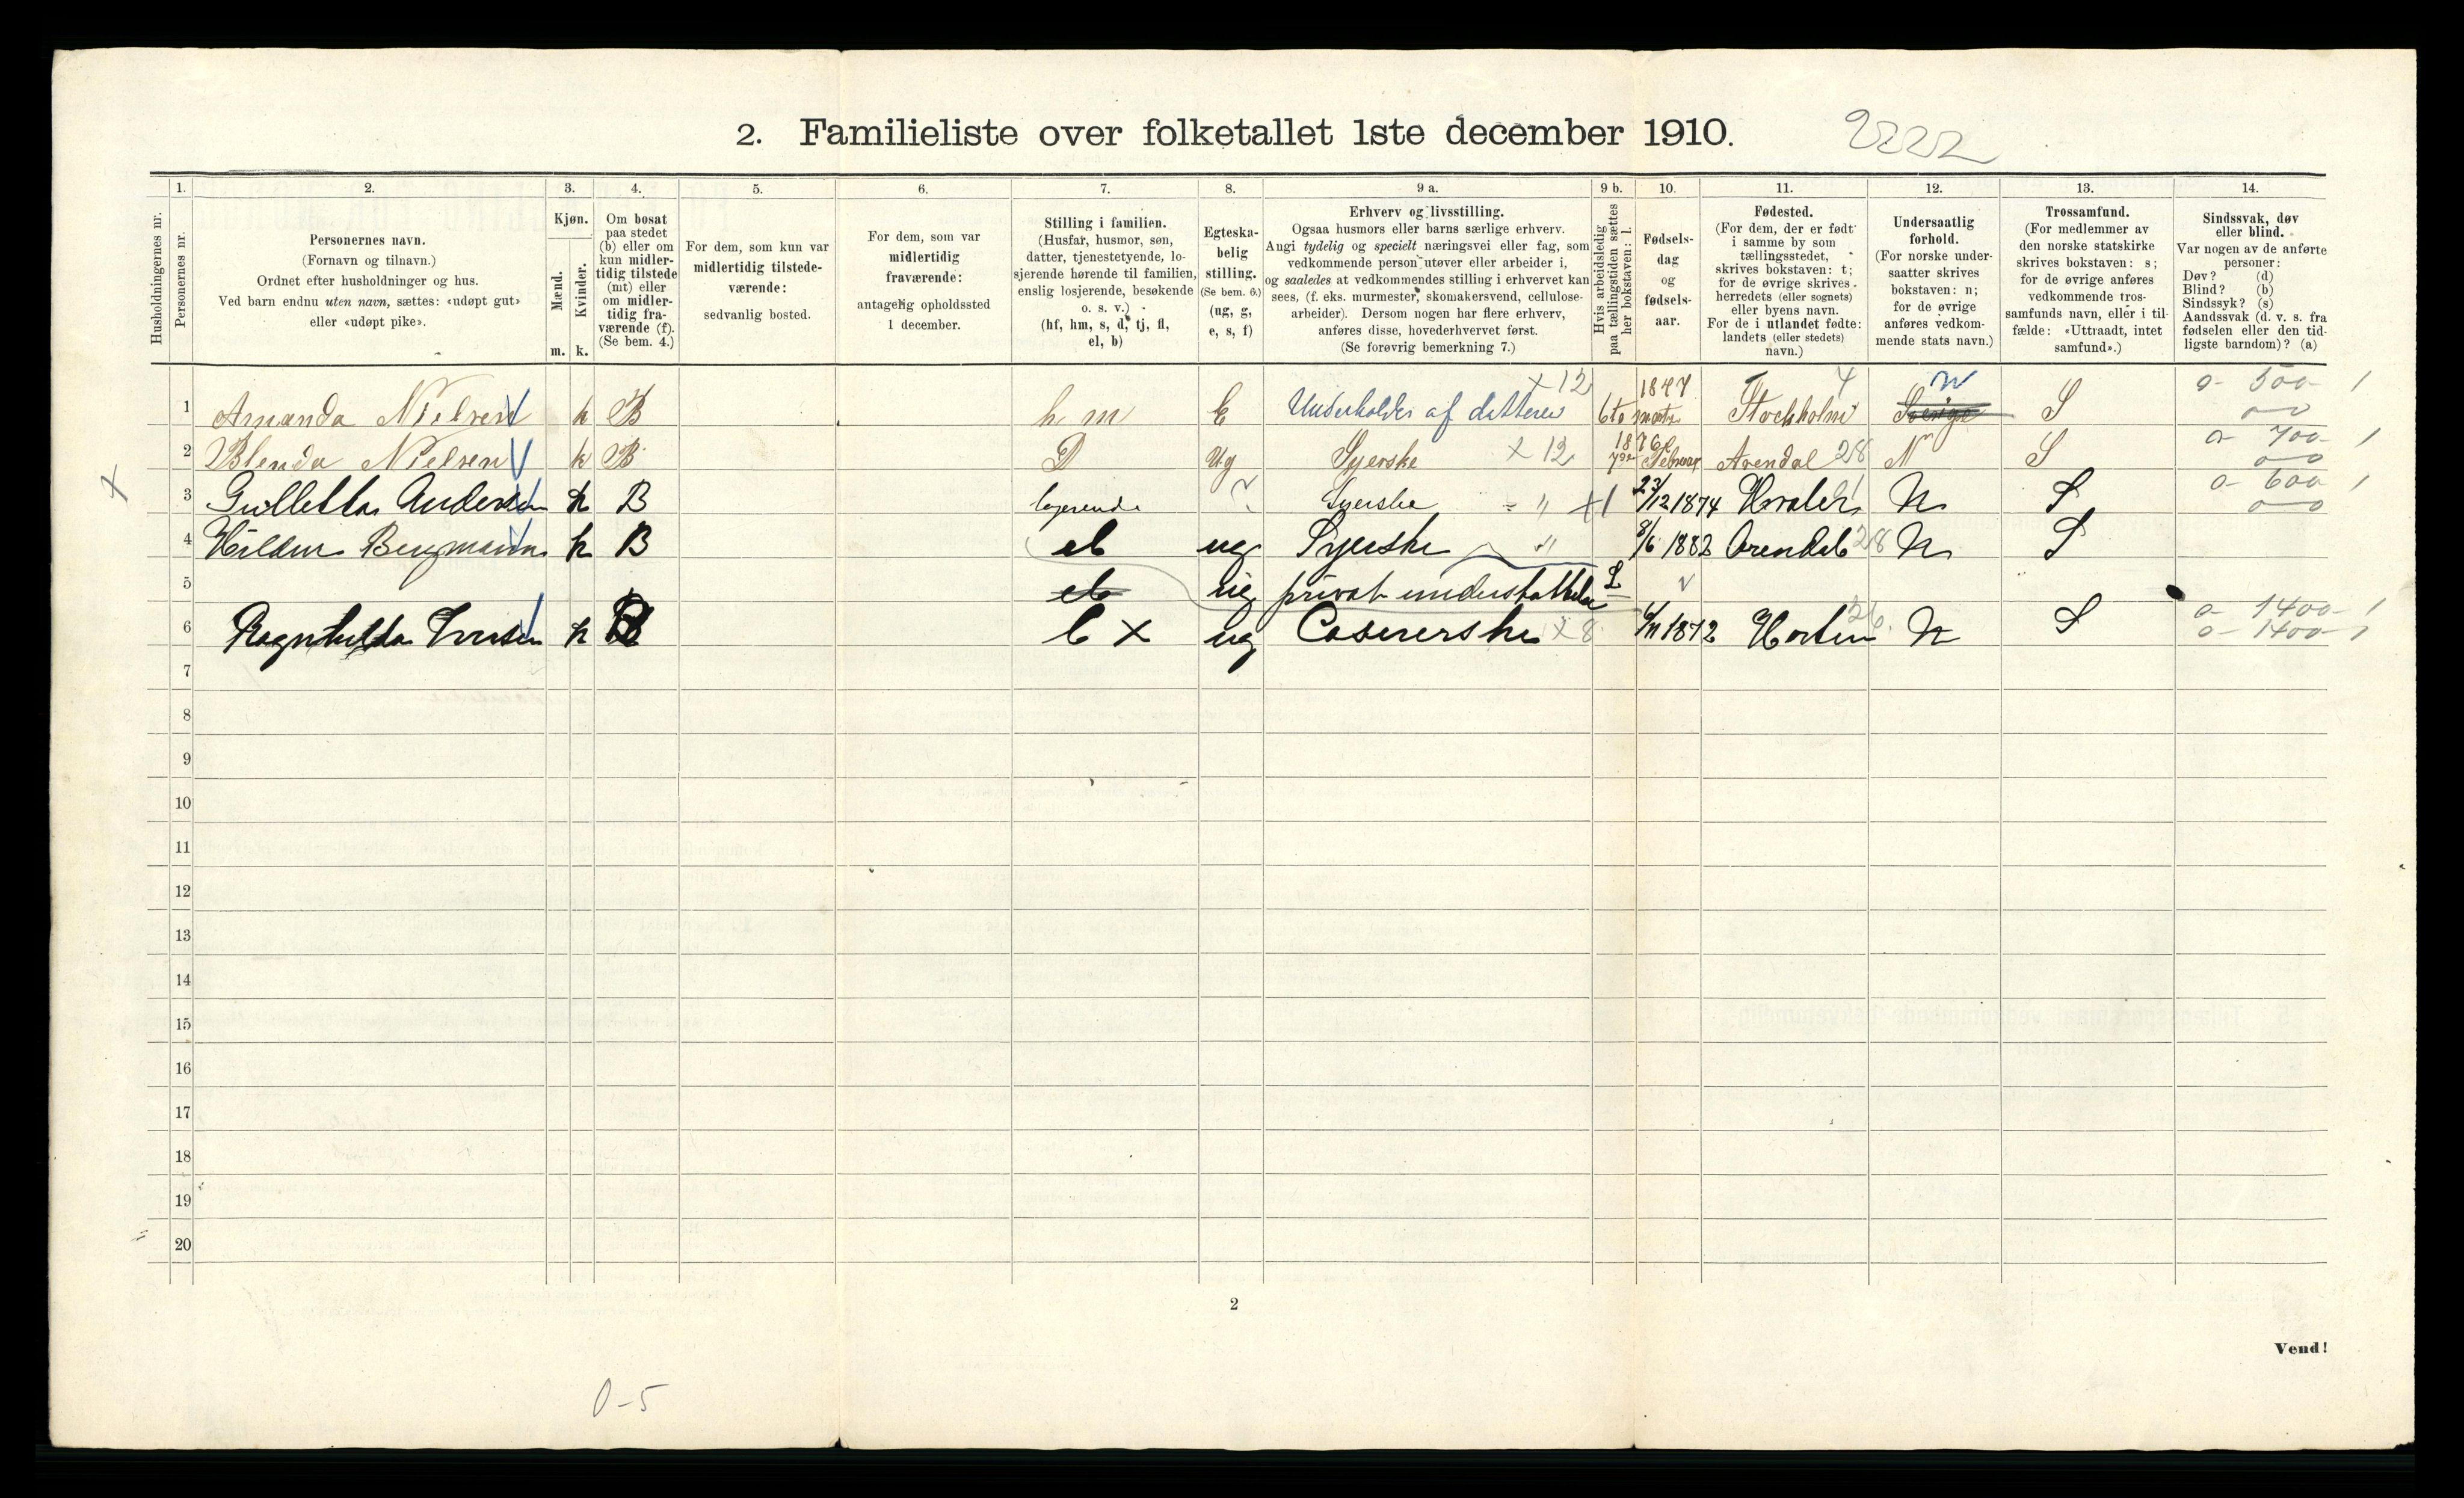 2. Familieliste over folketallet 1ste december 1910.
2222
1. 2. 3. 4. 5. 6. 7. 8. 9 a. 9 b. 10. 11. 12. 13. 14.
Husholdningernes nr.
Personernes nr.
Personernes navn.
(Fornavn og tilnavn.)
Ordnet efter husholdninger og hus.
Ved barn endnu uten navn, sættes: «udøpt gut»
eller «udøpt pike».
Kjøn.
Mænd.
Kvinder.
m. k.
Om bosat
paa stedet
(b) eller om
kun midler-
tidig tilstede
(mt) eller
om midler-
tidig fra-
værende (f).
(Se bem. 4.)
For dem, som kun var
midlertidig tilstede-
værende:
sedvanlig bosted.
For dem, som var
midlertidig
fraværende:
antagelig opholdssted
1 december.
Stilling i familien.
(Husfar, husmor, søn,
datter, tjenestetyende, lo-
sjerende hørende til familien,
enslig losjerende, besøkende
o. s. v.)
(hf, hm, s, d, tj, fl,
el, b)
Egteska-
belig
stilling.
(Se bem. 6.)
(ug, g,
e, s, f)
Erhverv og livsstilling.
Ogsaa husmors eller barns særlige erhverv.
Angi tydelig og specielt næringsvei eller fag, som
vedkommende person utøver eller arbeider i,
og saaledes at vedkommendes stilling i erhvervet kan
sees, (f. eks. murmester, skomakersvend, cellulose-
arbeider). Dersom nogen har flere erhverv,
anføres disse, hovederhvervet først.
(Se forøvrig bemerkning 7.)
Hvis arbeidsledig
paa tællingstiden sættes
her bokstaven: l.
Fødsels-
dag
og
fødsels-
aar.
Fødested.
(For dem, der er født
i samme by som
tællingsstedet,
skrives bokstaven: t;
for de øvrige skrives
herredets (eller sognets)
eller byens navn.
For de i utlandet fødte:
landets (eller stedets)
navn.)
Undersaatlig
forhold.
(For norske under-
saatter skrives
bokstaven: n;
for de øvrige
anføres vedkom-
mende stats navn.)
Trossamfund.
(For medlemmer av
den norske statskirke
skrives bokstaven: s;
for de øvrige anføres
vedkommende tros-
samfunds navn, eller i til-
fælde: «Uttraadt, intet
samfund».)
Sindssvak, døv
eller blind.
Var nogen av de anførte
personer:
Døv? (d)
Blind? (b)
Sindssyk? (s)
Aandssvak (d. v. s. fra
fødselen eller den tid-
ligste barndom)? (a)
1 Amanda Nielsen k B h m E Underholdes af datteren x 12 6te 1847 Stockholm 4 Sverige n S 0- 500- 1
2 Blenda Nielsen k B D Ug Syerske x 12 1876 Februar Arendal 28 N S 0- 700- 1
3 Gulletta Andersen k B logerende Syerske " x 1 23/12 1874 Hvaler N S 0- 600- 1
4 Hildur Bergmann k B el ug Syerske " 9/6 1882 Arendal 28 N S
5 el ug privat understøttelse
6 Ragnhilda Iversen k B b x ug Casererske x 8 1872 Horten 26 N S 0- 1400- 1
0- 1400- 1
7
8
9
10
11
12
13
14
15
16
17
18
19
20
2
Vend!
0-5